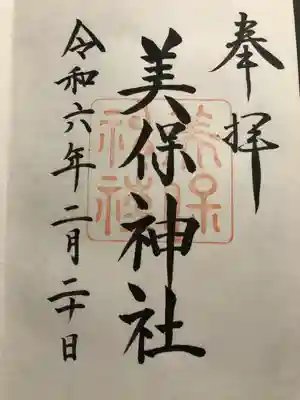 奉拝
美保神社
美保
神社
令和六年二月二十日